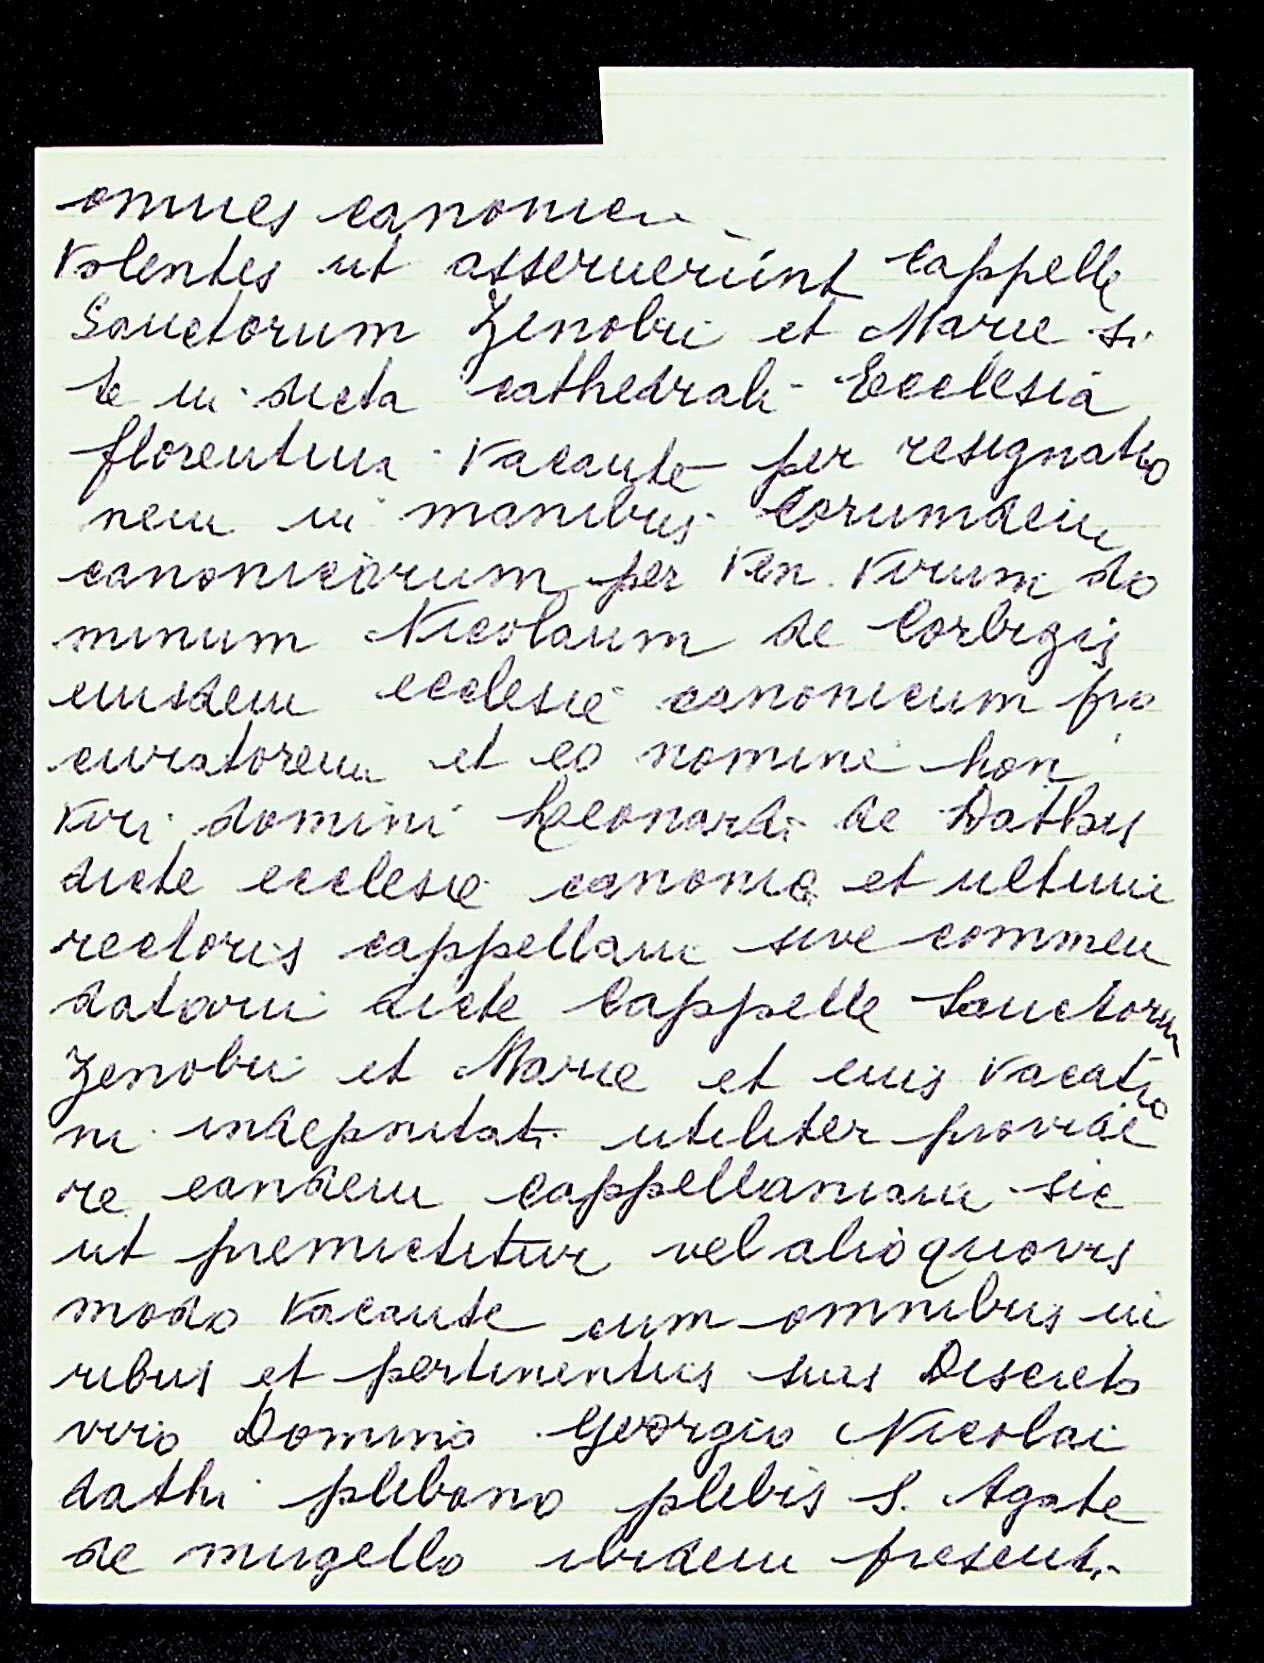 omnes canonici
Volentes ut asseruerunt Cappelle
Sanctorum Zenobii et Marie si
te in dicta cathedrali Ecclesia
florentina vacante per resignatio
nem in manibus eorumdem
canonicorum per Ven. Virum do
minum Nicolaum de Corbizis
eiusdem ecclesie canonicum pro
curatorem et eo nomine hon
viri domini Leonardi de Dathis
dicte ecclesie canonici et ultimi
rectoris cappellani sive commen
datarii dicte Cappelle Sanctorum
Zenobii et Marie et eius vacatio
ni indemnitati utiliter provide
re eandem cappellaniam sic
ut premictitur vel alio quovis
modo vacante cum omnibus iu
ribus et pertinentiis suis Discreto
viro Domino Georgio Nicolai
dathi plebano plebis S. Agate
de mugello ibidem presenti